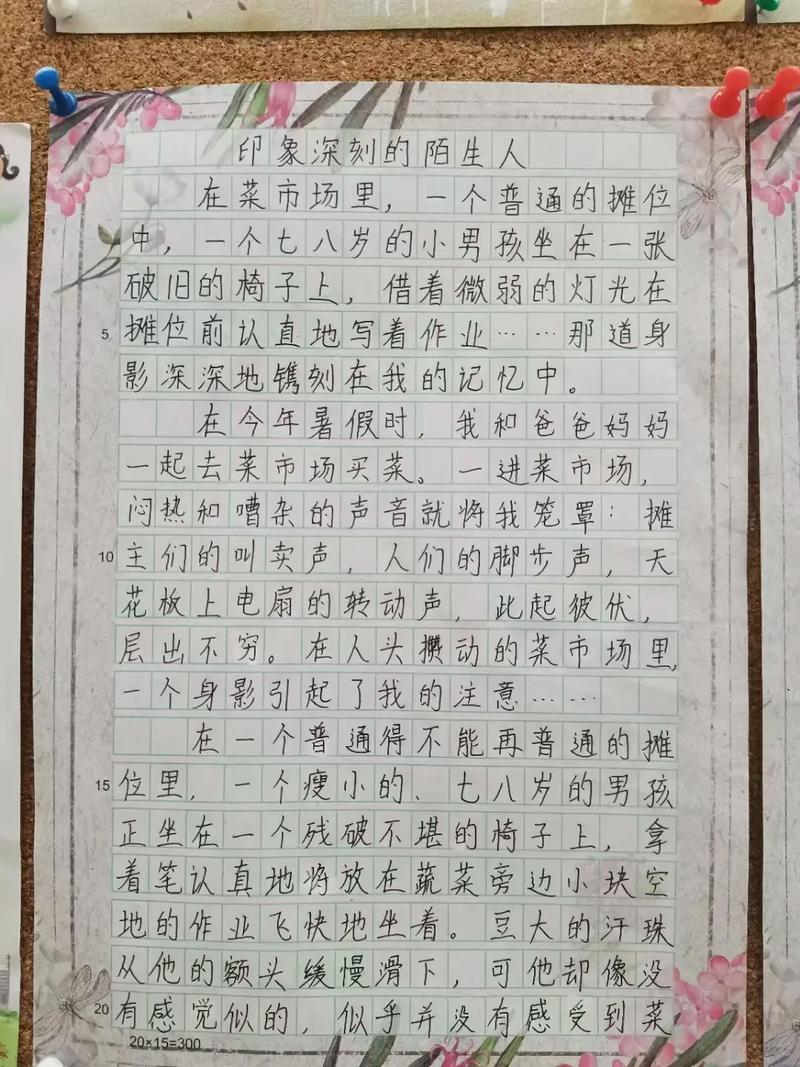 印象深刻的陌生人
在菜市场里，一个普通的摊位
中，一个七八岁的小男孩坐在一张
破旧的椅子上，借着微弱的灯光在
5 摊位前认真地写着作业……那道身
影深深地镌刻在我的记忆中。
在今年暑假时，我和爸爸妈妈
一起去菜市场买菜。一进菜市场，
闷热和嘈杂的声音就将我笼罩：摊
10 主们的叫卖声，人们的脚步声，天
花板上电扇的转动声，此起彼伏，
层出不穷。在人头攒动的菜市场里，
一个身影引起了我的注意……
在一个普通得不能再普通的摊
15 位里，一个瘦小的、七八岁的男孩
正坐在一个残破不堪的椅子上，拿
着笔认真地将放在蔬菜旁边小块空
地的作业飞快地坐着。豆大的汗珠
从他的额头缓慢滑下，可他却像没
20 有感觉似的，似乎并没有感受到菜
20×15=300